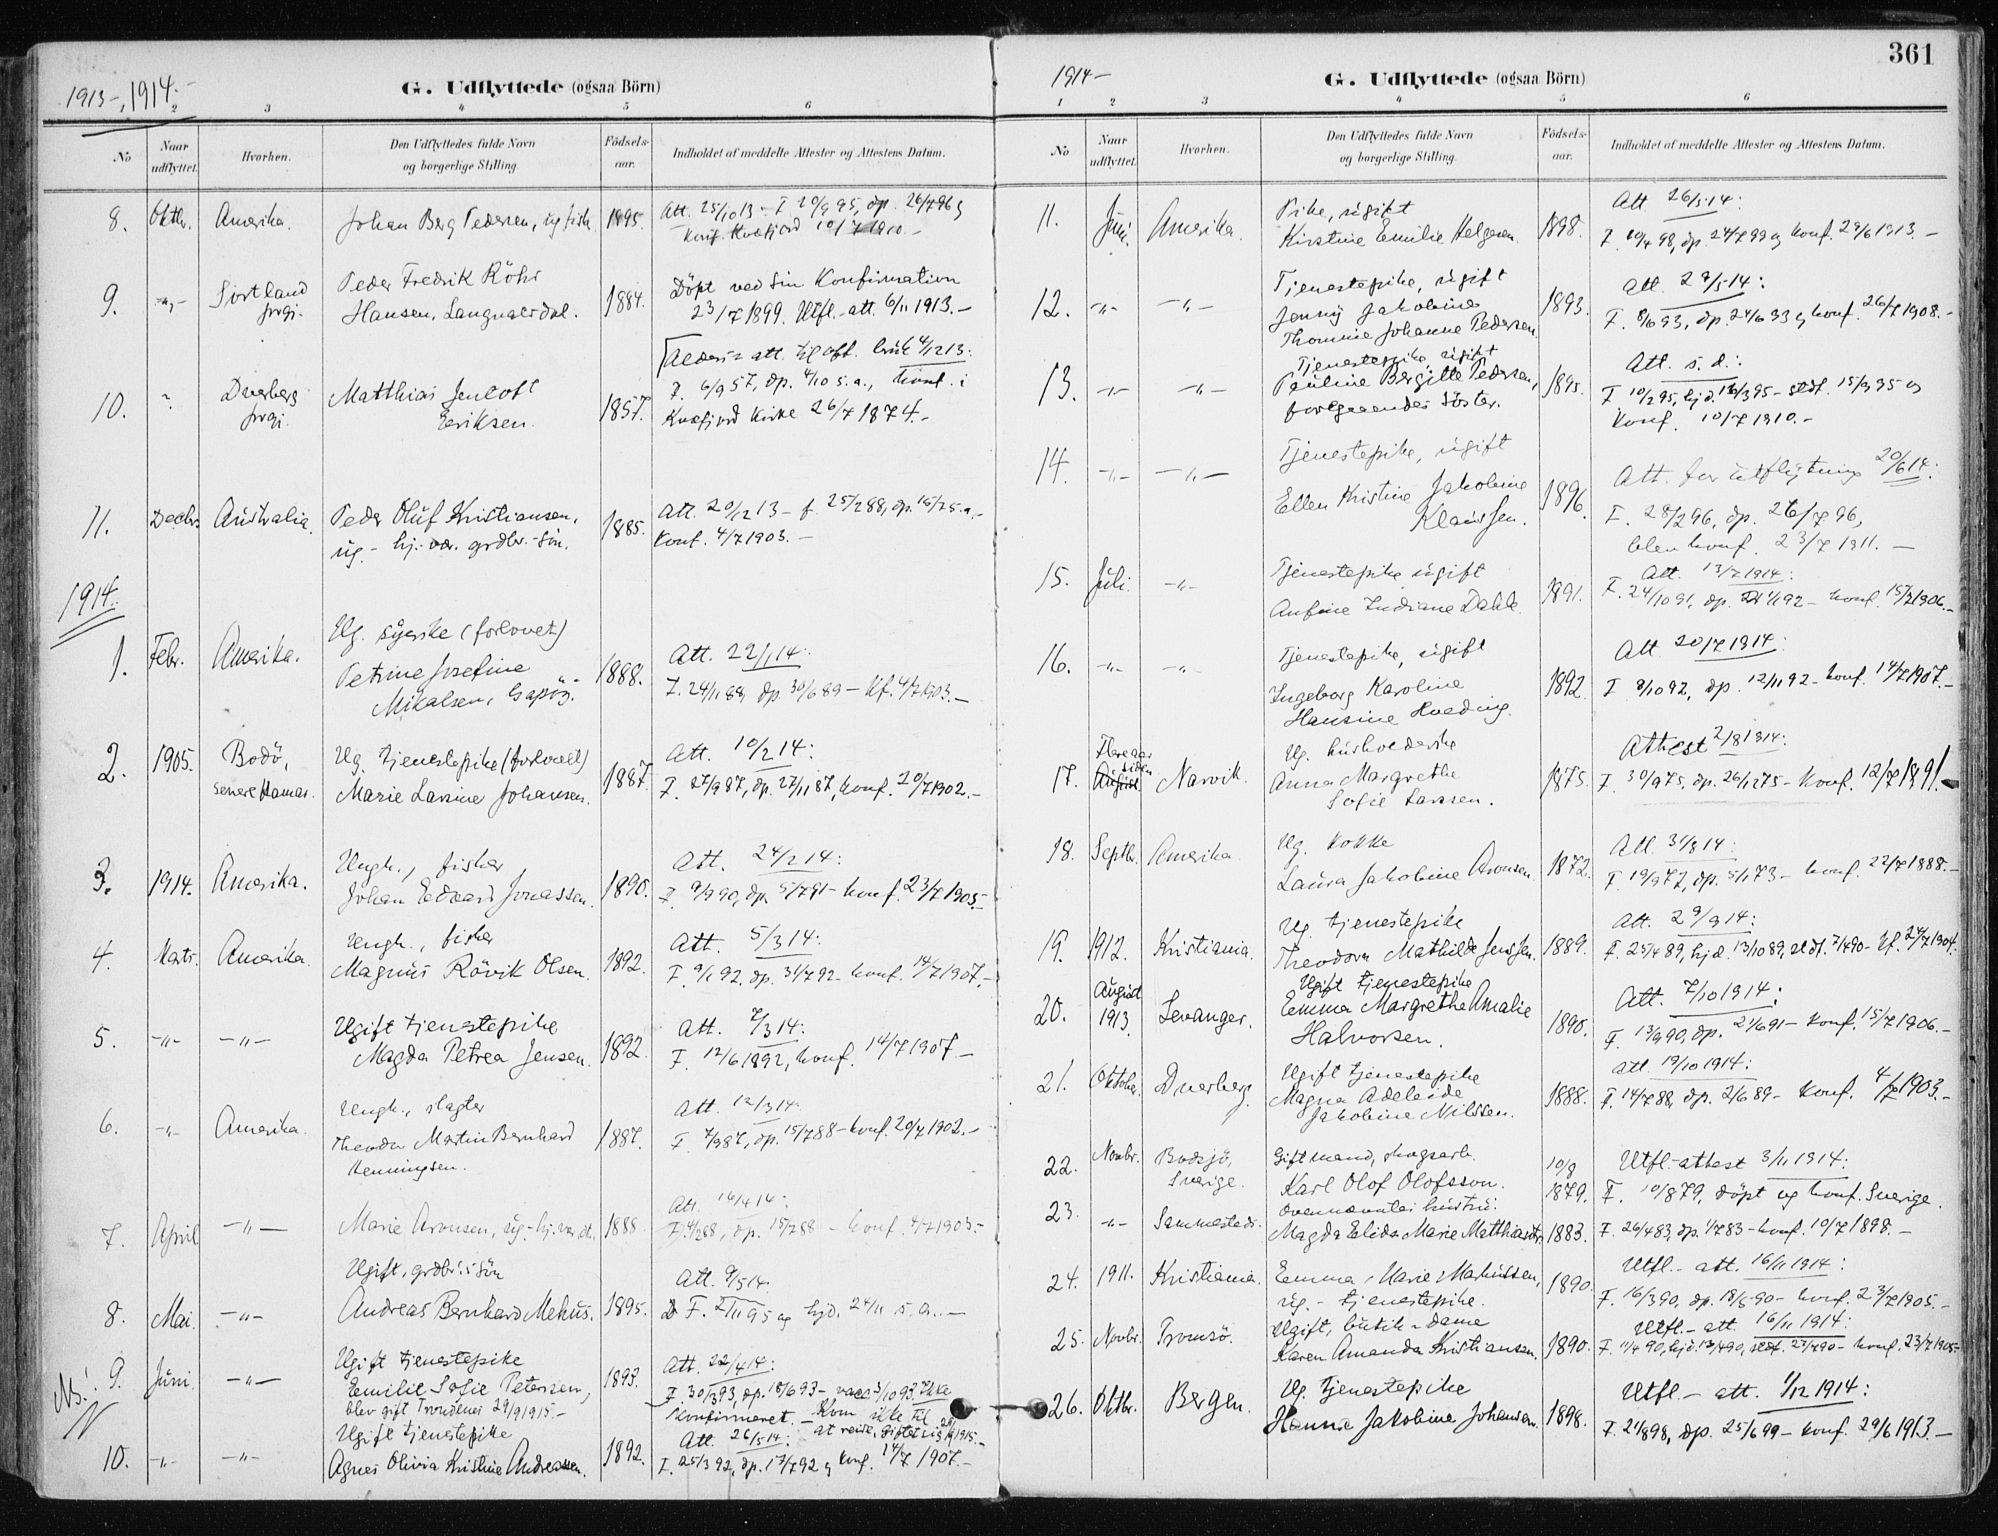 361
1913-, 1914.-
G. Udflyttede (ogsaa Börn)
2 3 4 5 6
No
Naar udflyttet.
Hvorhen.
Den Udflyttedes fulde Navn og borgerlige Stilling.
Födsels-aar.
Indholdet af meddelte Attester og Attestens Datum.
8. Oktbr. Amerika. Johan Berg Pedersen, ug fisk. 1895. Att. 25/10 13 - F 20/9 95, dp. 26/7 96 og
konf. Kvæfjord 10/7 1910.-
9. -"- Sortland Peder Fredrik Röhr Döpt ved sin Konfirmation
prgj. Hansen, Langvasdal. 1884. 23/7 1899. Utfl.-att. 6/11 1913.-
10. Dverberg Matthias Jentoft att. til off. bruk 4/12 13:
prgj. Eeriksen. 1857. F. 6/9 57, dp. 4/10 s.a., konf. i
Kvæfjord Kirke 26/7 1874.-
11. Decbr. Australia. Peder Oluf Kristiansen, 1885. Att. 20/12 13 - f. 25/2 88, dp. 15/7 s.a.-
ug.- hj.-vær. grdbr.-sön. Konf. 4/7 1903.-
1914.
1. Febr. Amerika. Ug. syerske (forlovet)
Petrine Josefine 1888. Att. 22/1 14:
Mikalsen, Gapöy. F. 24/11 88, dp. 30/6 89 - Kf. 4/7 1903.-
2. 1905. Bodö, Ug. tjenestepike (forlovet) Att. 10/2 14:
senere Hamar. Marie Lavine Johansen. 1887. F. 27/9 87, dp. 27/11 87, konf. 20/7 1902.-
3. 1914. Amerika. Ungk., fisker Att. 24/2 14:
Johan Edvard Jonassen. 1890. F. 9/9 90, dp. 5/7 91 - konf. 23/7 1905.-
4. Marts. Amerika. Ungk., fisker Att. 5/3 14:
Magnus Rövik Olsen. 1892. F. 9/1 92, dp. 31/7 92 - konf. 14/7 1907.-
5. -"- -"- Ugift tjenestepike Att. 7/3 14:
Magda Petrea Jensen. 1892. F. 12/6 1892, konf. 14/7 1907.-
6. -"- Amerika. Ungk., slagter Att. 12/3 14:
Theodor Martin Bernhard 1887. F. 7/9 87, dp. 15/7 88 - konf. 20/7 1902.-
Henningsen.
7. April -"- Marie Aronsen, ug.-hj.vær. dt. 1888. Att. 16/4 14:
F. 4/2 88, dp. 15/7 88 - konf. 4/7 1903.-
8. Mai. -"- Ugift, grdbr.s sön Att. 9/5 14.
Andreas Bernhard Mehus. 1895. F. 2/11 95 og hjd. 24/11 s.a.-
NB! 9. Juni -"- Ugift tjenestepike 1893. Att. 22/4 14:
Emilie Sofie Petersen, F 30/3 93, dp. 18/6 93 - vacc. 3/10 93. Ikke
blev gift Trondenes 29/9 1915.- konfirmeret. - Kom ikke til
at reise, giftet sig 29/9 1915.-
10. -"- -"- Ugift tjenestepike Att. 26/5 14:
Agnes Olivia Kristine Andreassen. 1892. F. 25/3 92, dp. 17/7 92 og konf. 14/7 1907.-
1914-
G. Udflyttede (ogsaa Börn)
1 2 3 4 5 6
No
Naar udflyttet.
Hvorhen.
Den Udflyttedes fulde Navn og borgerlige Stilling.
Födsels-aar.
Indholdet af meddelte Attester og Attestens Datum.
11. Juni. Amerika. Pike, ugift Att. 26/5 14:
Kirstine Emilie Helgesen. 1898. F. 10/4 98, dp. 24/7 99 og konf. 29/6 1913.-
12. -"- -"- Tjenestepike, ugift Att. 29/5 14:
Jenny Jakobine 1893. F. 8/6 93, dp. 24/6 93 og konf. 26/7 1908.-
Thomine Johanne Pedersen.
13. -"- -"- Tjenestepike, ugift Att. s.d.:
Pauline Bergitte Pedersen, 1895. F 10/2 95, hjd. 16/3 95 - stdf. 15/9 95 og
foregaaendes söster. Konf. 10/7 1910.-
14. -"- -"- Tjenestepike, ugift Att. for utflytning 20/6 14:
Ellen Kristine Jakobine 1896. F. 28/2 96, dp. 26/7 96,
Klaussen. blev konf. 23/7 1911.-
15. Juli. -"- Tjenestepike ugift Att. 13/7 1914:
Anfine Indiane Dahle 1891. F. 24/10 91, dp. 1/1 92 - konf. 15/7 1906.-
16. -"- -"- Tjenestepike, ugift Att. 20/7 1914:
Ingeborg Karoline 1892. F 8/10 92, dp. 12/11 92 - konf. 14/7 1907.-
Hansine Hveding.
17. Flere aar siden Narvik. Ug. husholderske Attest 2/8 1914:
Anna Margrethe 1875. F. 30/9 75, dp. 26/12 75 - konf. 12/7 1891.-
Sofie Larssen.
18. Septbr. Amerika. Ug. kokke Att. 31/8 14:
Laura Jakobine Aronsen. 1872. F. 19/9 72, dp. 5/1 73 - konf. 22/7 1888.-
19. 1912. Kristiania. Ug. tjenestepike Att. 29/9 14:
Theodora Mathilde Jenssen. 1889. F. 25/4 89, hjd. 13/10 89, stdf. 7/4 90 - Kf. 24/7 1904.
20. August 1913. Levanger. Ugift tjenestepike Att. 7/10 1914:
Emma Margrethe Amalie 1890. F. 13/9 90, dp. 21/6 91 - konf. 15/7 1906.-
Halvorsen.
21. Oktober. Dverberg. Ugift tjenestepike Att. 19/10 1914:
Magna Adeleide 1888. F. 14/7 88, dp. 2/6 89 - konf. 4/7 1903.-
Jakobine Nilssen.
22. Novbr. Bodsjö, Gift mand, skogsarb. 10/8 Utfl.-attest 3/11 1914:
Sverige. Karl Olof Olofsson. 1879. F. 10/8 79, döpt og konf. Sverige.
23. -"- Sammesteds. Ovennævntes hustru:
Magda Elida Marie Matthiasdtr. 1883. F. 26/4 83, dp. 1/7 83 - konf. 10/7 1898.-
24. 1911. Kristiania. Emma Marie Markussen, 1890. Utfl.- att. 16/11 1914:
ug. - tjenestepike. F. 16/3 90, dp. 18/5 90 - konf. 23/7 1905.-
25. Novbr. Tromsö. Ugift, butik-dame Utfl.- att. 16/11 1914:
Karen Amanda Kristiansen. 1890. F. 1/4 90, hjd. 13/4 90, stdf. 27/4 90 - konf. 23/7 1905-
26. Oktbr. Bergen. Ug. tjenestepike Utfl.- att. 1/12 1914:
Hanna Jakobine Johansen. 1898. F. 21/8 98, dp. 25/6 99 - konf. 29/6 1913.-